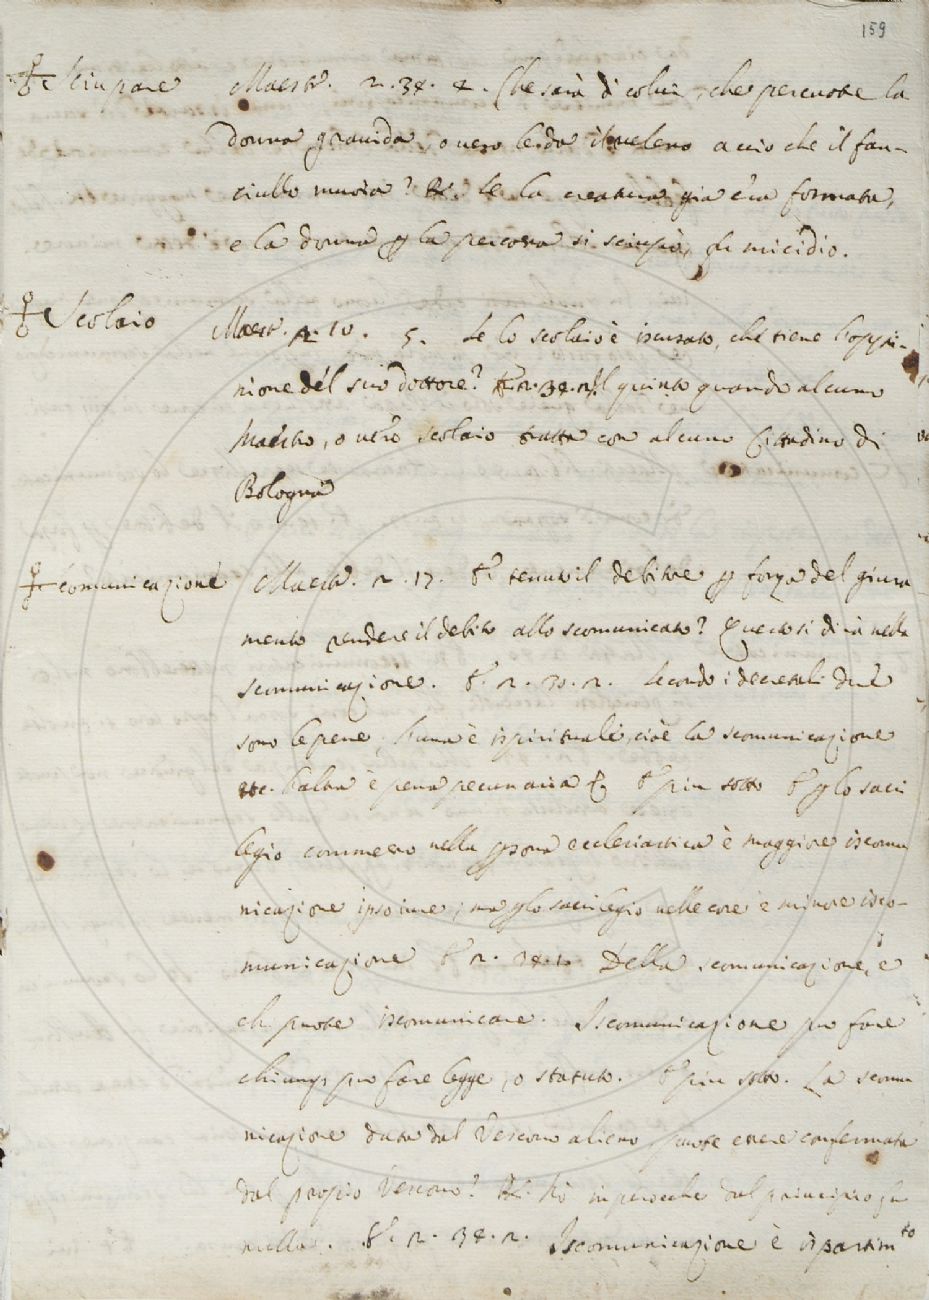 159
Sciupare Maestr. 2. 34. 2. Che sarà di colui, che percuote la
donna gravida, o vero le da il veleno a ccio che il fan-
ciullo muoia? R. Se la creatura già era formata,
e la donna p la percossa si sciupò, fu micidio.
Scolaio Maestr. 2. 10. 5. Se lo scolaio è iscusato, che tiene l'oppi-
nione del suo dottore? E 2. 34. 2. Il quinto quando alcuno
Maestro, o vero scolaio tratta con alcuno Cittadino di
Bologna
Scomunicazione Maestr. 2. 17. E tenuto il debitore p forza del giura-
mento rendere il debito allo scomunicato? Questo si dirà nella
scomunicazione. E 2. 30. 2. Secondo i decretali due
sono le pene, l'una è ispirituale, cioè la scomunicazione
etc. l'altra è pena pecuniaria E più sotto E p lo sacri
legio commesso nella psona ecclesiastica è maggiore iscomu
nicazione ipso iure; ma p lo sacrilegio nelle cose è minore isco-
municazione E 2. 34. 1. Della scomunicazione, e
chi puote iscomunicare. Iscomunicazione può fare
chiunq; può fare legge, o statuto. E più sotto. La scomu
nicazione data dal Vescovo alieno puote essere confermata
dal propio Vescovo? R. Nò imperocche dal principio fu
nulla. E 2. 34. 2. Iscomunicazione è ispartim.to